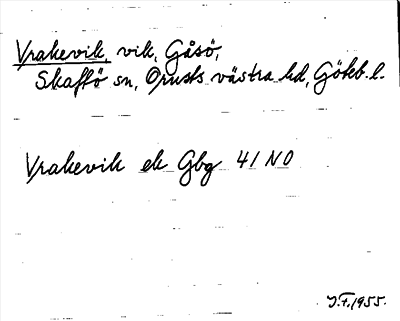 Vrakevik, vik, Gåsö,
Skaftö sn, Orusts västra hd, Göteb. l.
Vrakevik ek Gbg 41 NO
J.F. 1955.